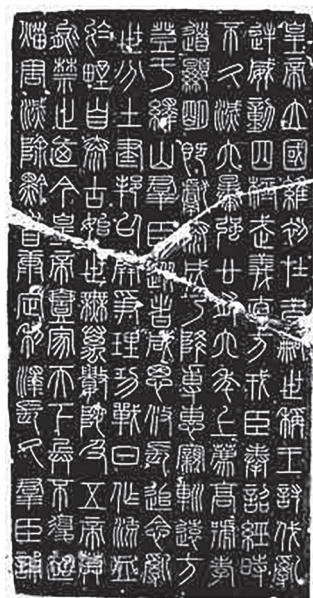 皇帝立國維初在昔嗣世稱王討伐亂
逆威動四極武義直方戎臣奉詔經時
不久滅六暴強廿有六年上薦高號孝
道顯明既獻泰成乃降專惠親巡遠方
登于繹山群臣從者咸思攸長追念亂
世分土建邦以開爭理功戰日作流血
於野自泰古始世無萬數陀及五帝莫
能禁止迺今皇帝壹家天下兵不復起
災害滅除黔首康定利澤長久群臣誦